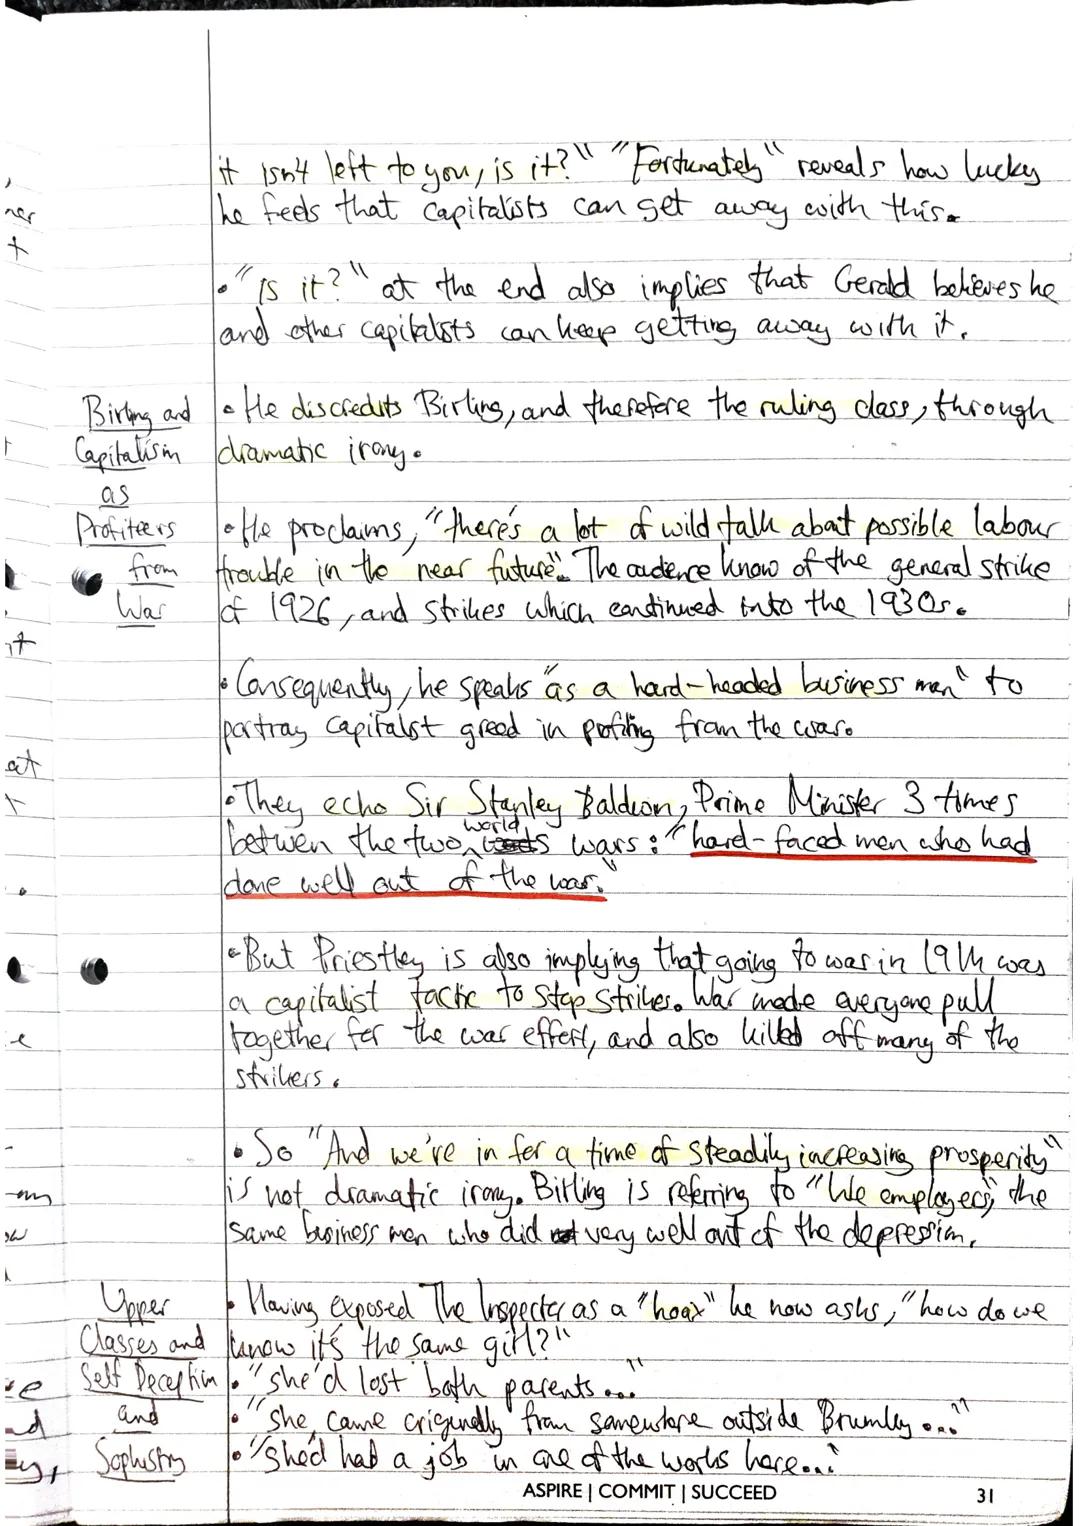 it isn't left to you, is it?" "Fortunately" reveals how lucky
he feels that capitalists can get away with this.
• "is it?" at the end also implies that Gerald believes he
and other capitalists can keep getting away with it.
Birling and
Capitalism
as
Profiteers
from
War
• He discredits Birling, and therefore the ruling class, through
dramatic irony.
• He proclaims, "there's a lot of wild talk about possible labour
trouble in the near future". The audience know of the general strike
of 1926, and strikes which continued into the 1930s.
• Consequently, he speaks "as a hard-headed business man" to
portray capitalist greed in profiting from the war.
• They echo Sir Stanley Baldwin, Prime Minister 3 times
between the two world wars: "hard-faced men who had
done well out of the war."
• But Priestley is also implying that going to war in 1914 was
a capitalist tactic to stop strikes. War made everyone pull
together for the war effort, and also killed off many of the
strikers.
• So "And we're in for a time of steadily increasing prosperity"
is not dramatic irony. Birling is referring to "We employers", the
same business men who did very well out of the depression.
Upper
Classes and
Self Deception
and
Sophistry
• Having exposed The Inspector as a "hoax" he now asks, "how do we
know it's the same girl?"
• "she'd lost both parents..."
• "she came originally from somewhere outside Brumley..."
• "she'd had a job in one of the works here..."
ASPIRE | COMMIT | SUCCEED
31